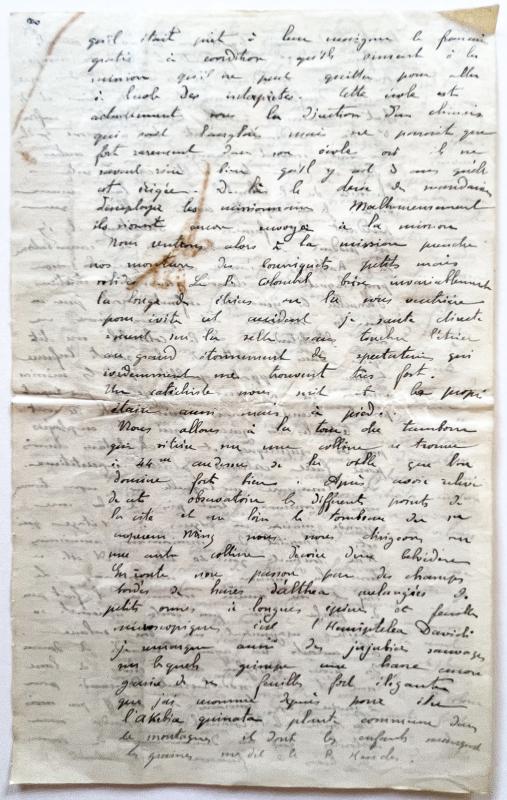 qu'il était prêt à leur enseigner le français
gratis à condition qu'ils vinssent à la
mission qu'il ne peut quitter pour aller
à l'école des interprètes. Cette école est
actuellement sous la direction d'un chinois
qui sait l'anglais mais ne paraît que
fort rarement dans son école où il ne
savent rien bien qu'il y ait 3 ans qu'elle
est érigée. De là le désir du mandarin
d'employer les missionnaires Malheureusement
ils n'ont encore envoyé à la mission
Nous rentrons alors à la mission prendre
nos montures des bourriquets petits mais
solides. Le P. Colombel brise invariablement
la longe des étriers ou la sous ventrière
pour éviter cet accident je saute directe
ment sur la selle sans toucher l'étrier
au grand étonnement des spectateurs qui
évidemment me trouvent très fort.
Un catéchiste nous suit et le propri
étaire aussi mais à pied.
Nous allons à la tour du tambour
qui située sur une colline se trouve
à 44m au dessus de la ville que l'on
domine fort bien. Après avoir relevé
de cet observatoire les différents points de
la cité et au loin le tombeau du
empereur Ming nous nous dirigeons sur
une autre colline décorée d'un belvédère
En route nous passons par des champs
bordés de haies d'althea mélangées de
petits ormes à longues épines et feuilles
microscopiques c'est l'Hemiptelea Davidi
je remarque aussi des jujubiers sauvages
sur lesquels grimpe une liane encore
garnie de ses feuilles fort élégantes
que j'ai reconnue depuis pour être
l'Akebia quinata plante commune dans
les montagnes et dont les enfants mangent
les graines me dit le P.